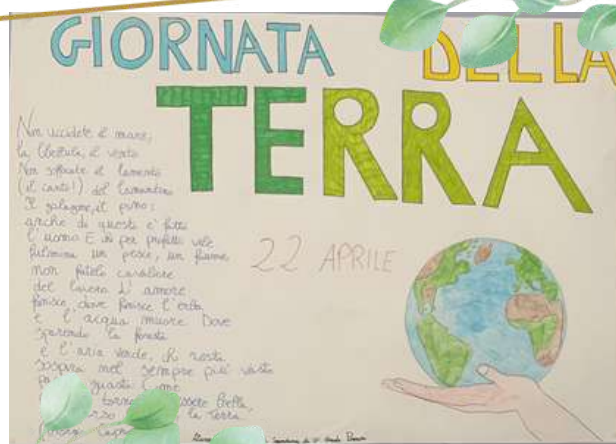 GIORNATA DELLA
TERRA
22 APRILE
Non uccidete il mare,
la libellula, il vento
Non soffocate il lamento
(il canto!) del lamantino
Il galagone, il pino:
anche di questo è fatto
l'uomo E chi per profitto vile
fulmina un pesce, un fiume
non fatelo cavaliere
del lavoro L'amore
finisce dove finisce l'erba
e l'acqua muore Dove
sparendo la foresta
e l'aria verde, chi resta
sospira nel sempre più vasto
guasto Come
torna essere bella,
la terra